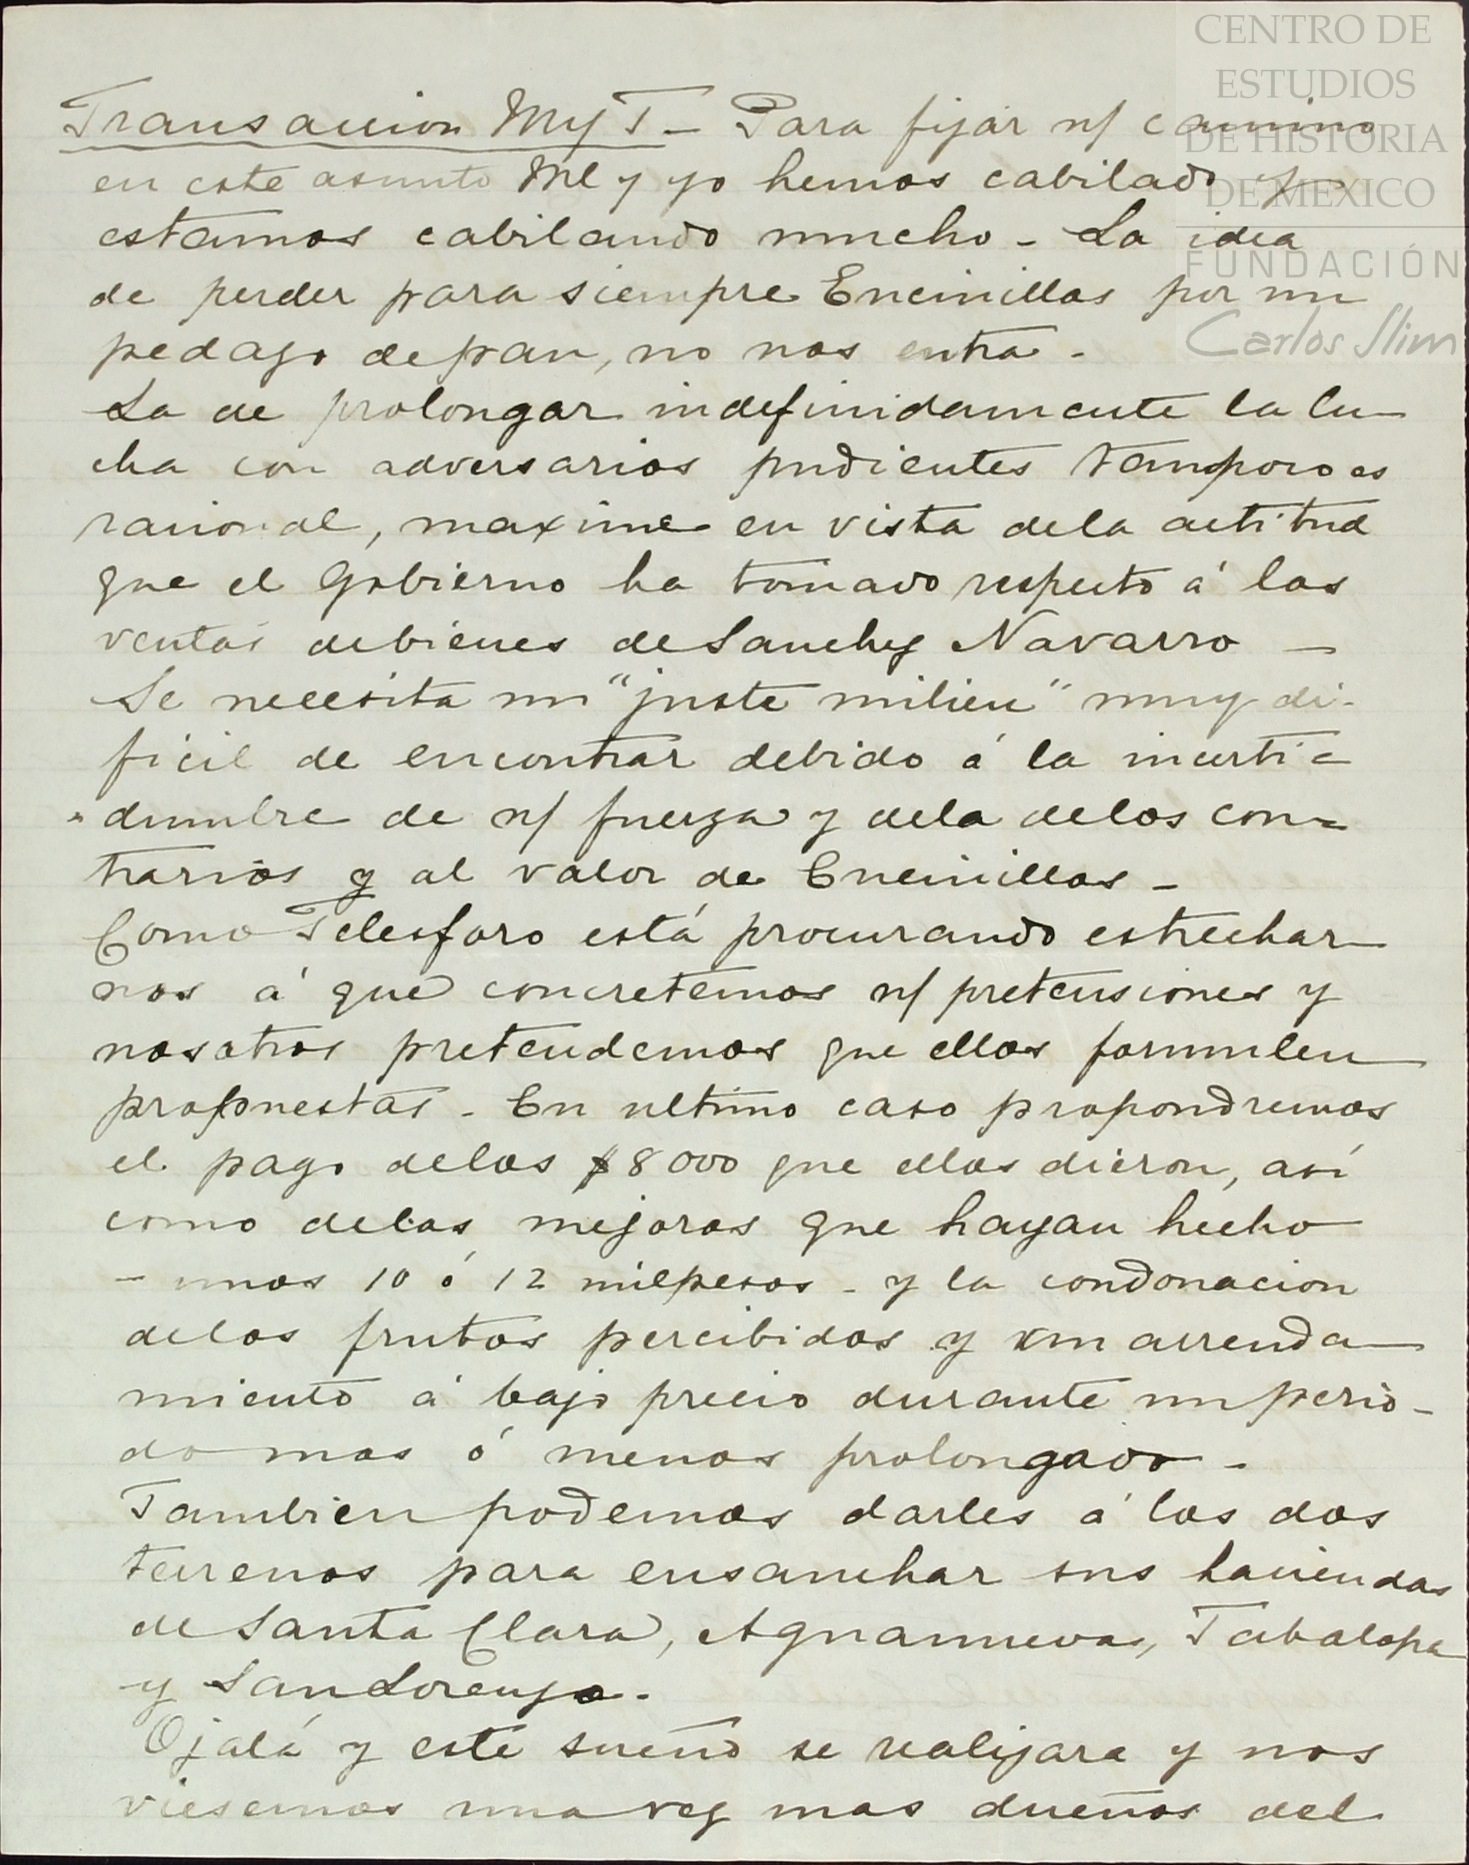 CENTRO DE
ESTUDIOS
DE HISTORIA
DE MEXICO
FUNDACIÓN
Carlos Slim
Transaccion M y T - Para fijar n/ camino
en este asunto Ml y yo hemos cabilado y
estamos cabilando mucho - La idea
de perder para siempre Encinillas por un
pedazo de pan, no nos entra -
La de prolongar indefinidamente la lu-
cha con adversarios pudientes tampoco es
racional, maxime en vista de la actitud
que el Gobierno ha tomado respecto á las
ventas de bienes de Sanchez Navarro -
Se necesita un "juste milieu" muy di-
ficil de encontrar debido á la incerti-
dumbre de n/ fuerza y de la de los con-
trarios y al valor de Encinillas -
Como Telesforo está procurando estrechar-
nos á que concretemos n/ pretensiones y
nosotros pretendemos que ellos formulen
propuestas - En ultimo caso propondremos
el pago de los $8000 que ellos dieron, así
como de las mejoras que hayan hecho
- unos 10 ó 12 mil pesos - y la condonacion
de los frutos percibidos y un arrenda-
miento á bajo precio durante un perio-
do mas ó menos prolongado -
Tambien podemos darles á los dos
terrenos para ensanchar sus haciendas
de Santa Clara, Aguanueva, Tabalopa
y San Lorenzo -
Ojalá y este sueño se realizara y nos
viesemos una vez mas dueños del